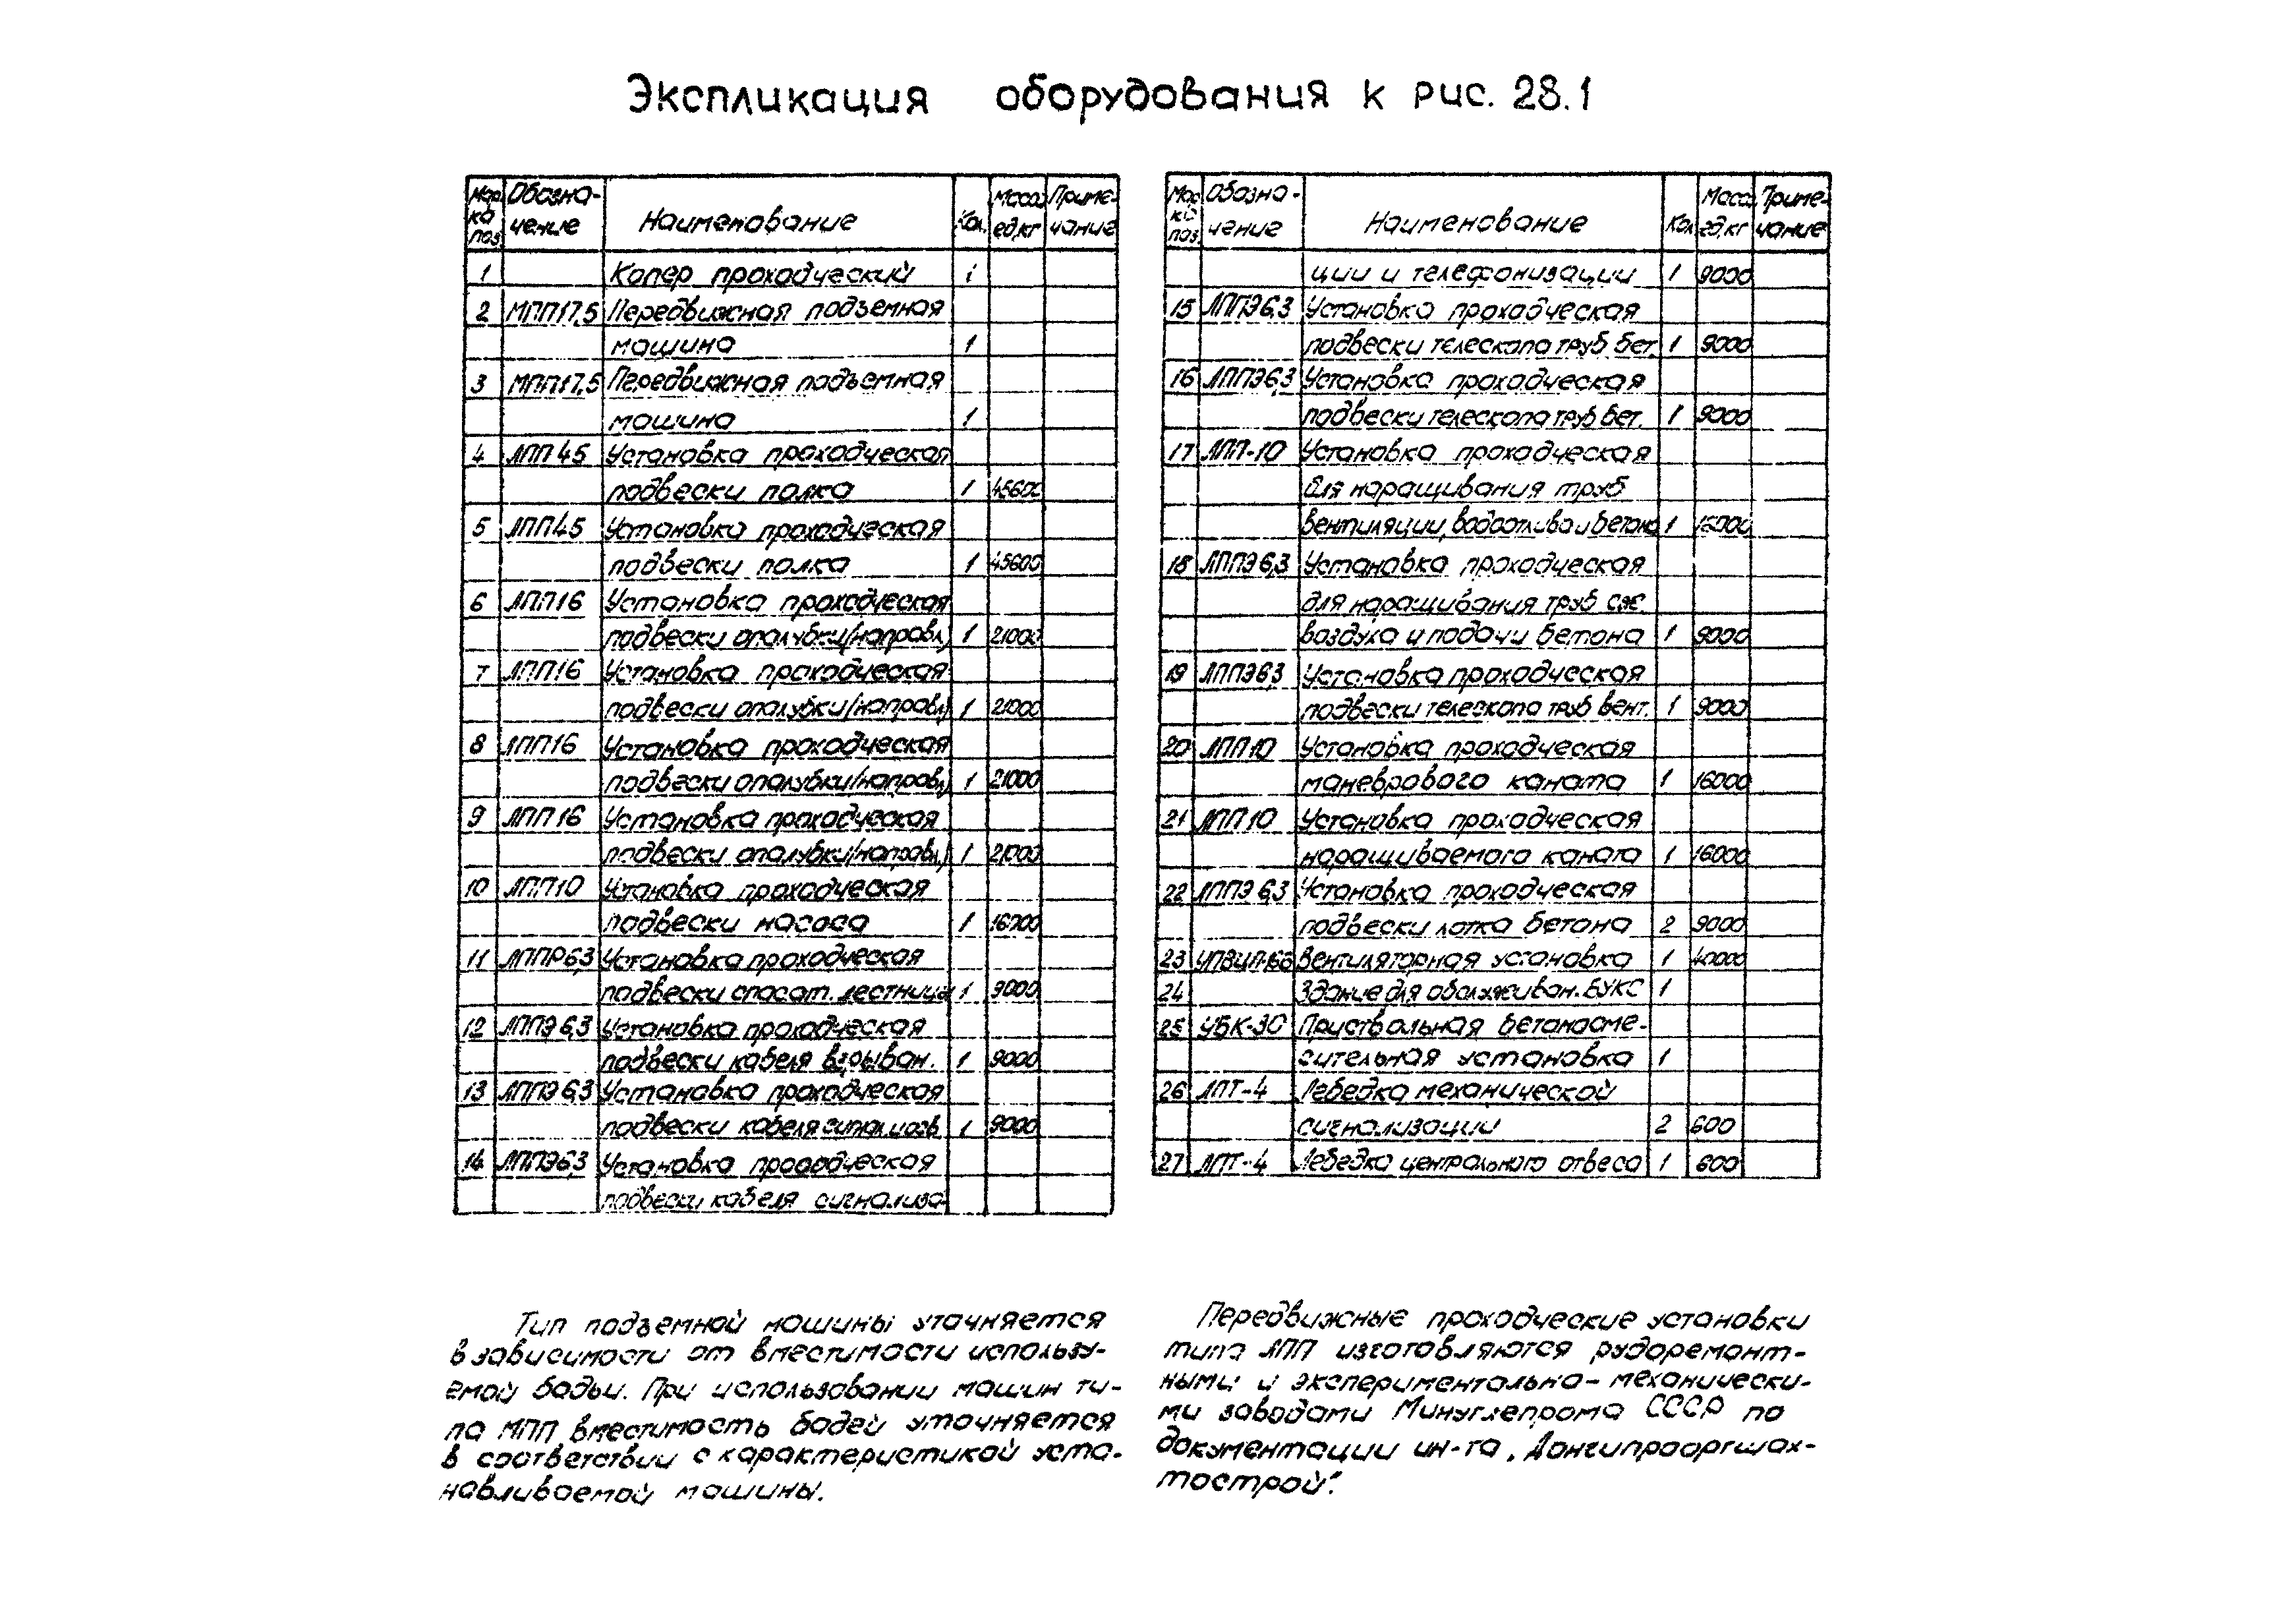 Экспликация оборудования к рис. 28.1
Мар- Обозна- Наименование Кол. Масса Приме-
ка чение ед,кг чание
поз.
1 Копер проходческий 1
2 МПП17,5 Передвижная подъемная
машина 1
3 МПП17,5 Передвижная подъемная
машина 1
4 ЛПП 45 Установка проходческая
подвески полка 1 45600
5 ЛПП45 Установка проходческая
подвески полка 1 45600
6 ЛПП16 Установка проходческая
подвески опалубки/направл/ 1 21000
7 ЛПП16 Установка проходческая
подвески опалубки/направл/ 1 21000
8 ЛПП16 Установка проходческая
подвески опалубки/направл/ 1 21000
9 ЛПП16 Установка проходческая
подвески опалубки/направл/ 1 21000
10 ЛПП10 Установка проходческая
подвески насоса 1 16000
11 ЛППР6,3 Установка проходческая
подвески спасат. лестницы 1 9000
12 ЛППЭ 6,3 Установка проходческая
подвески кабеля взрыван. 1 9000
13 ЛППЭ 6,3 Установка проходческая
подвески кабеля 1 9000
14 ЛППЭ6,3 Установка проходческая
подвески кабеля сигнализа-
Мар- Обозна- Наименование Кол. Масса Приме-
ка чение ед,кг чание
поз.
ции и телефонизации 1 9000
15 ЛППЭ6,3 Установка проходческая
подвески телескопа труб бет. 1 9000
16 ЛППЭ6,3 Установка проходческая
подвески телескопа труб бет. 1 9000
17 ЛПП-10 Установка проходческая
для наращивания труб
вентиляции, водоотлива и бетона 1 16000
18 ЛППЭ 6,3 Установка проходческая
для наращивания труб сж.
воздуха и подачи бетона 1 9000
19 ЛППЭ6,3 Установка проходческая
подвески телескопа труб вент. 1 9000
20 ЛПП10 Установка проходческая
маневрового каната 1 16000
21 ЛПП10 Установка проходческая
наращиваемого каната 1 16000
22 ЛППЭ 6,3 Установка проходческая
подвески лотка бетона 2 9000
23 Вентиляторная установка 1 40000
24 Здание для обслуживан. БУКС 1
25 УБК-30 Приствольная бетоносме-
сительная установка 1
26 ЛПТ-4 Лебедка механической
сигнализации 2 600
27 ЛПТ-4 Лебедка центрального отвеса 1 600
Тип подъемной машины уточняется
в зависимости от вместимости использу-
емой бадьи. При использовании машин ти-
па МПП вместимость бадей уточняется
в соответствии с характеристикой уста-
навливаемой машины.
Передвижные проходческие установки
типа ЛПП изготовляются рудоремонт-
ными и экспериментально-механически-
ми заводами Минуглепрома СССР по
документации ин-та „Донгипрооргшах-
тострой“.